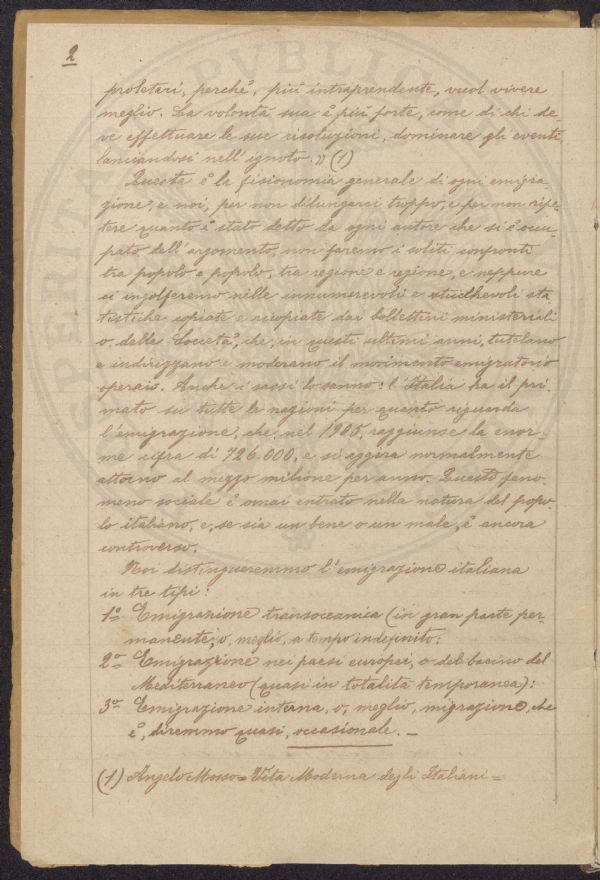 2
proletari, perchè, più intraprendente, vuol vivere
meglio. La volontà sua è più forte, come di chi de-
ve effettuare le sue risoluzioni, dominare gli eventi,
lanciandosi nell'ignoto.» (1)
Questa è la fisionomia generale di ogni emigra-
zione, e noi, per non dilungarci troppo, e per non ripe-
tere quanto è stato detto da ogni autore che si è occu-
pato dell'argomento, non faremo i soliti confronti
tra popolo e popolo, tra regione e regione, e neppure
ci ingolferemo nelle innumerevoli e stucchevoli sta-
tistiche copiate e ricopiate dai bollettini ministeriali
o dalle Società, che, in questi ultimi anni, tutelano
e indirizzano e moderano il movimento emigratorio
operaio. Anche i sassi lo sanno: l'Italia ha il pri-
mato su tutte le nazioni per quanto riguarda
l'emigrazione, che, nel 1905, raggiunse la enor-
me cifra di 726.000, e si aggira normalmente
attorno al mezzo milione per anno. Questo feno-
meno sociale è omai entrato nella natura del popo-
lo italiano, e, se sia un bene o un male, è ancora
controverso.
Noi distingueremmo l'emigrazione italiana
in tre tipi:
1º= Emigrazione transoceanica (in gran parte per-
manente, o, meglio, a tempo indefinito:
2º= Emigrazione nei paesi europei, o del bacino del
Mediterraneo (quasi in totalità temporanea):
3º= Emigrazione interna, o, meglio, migrazione, che
è, diremmo quasi, occasionale. _
(1) Angelo Mosso= Vita Moderna degli Italiani=
PVBLIC
SPERITAS